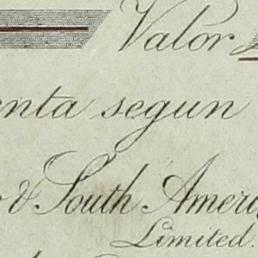 Valor £
enta segun
o & South Ameri
Limited.